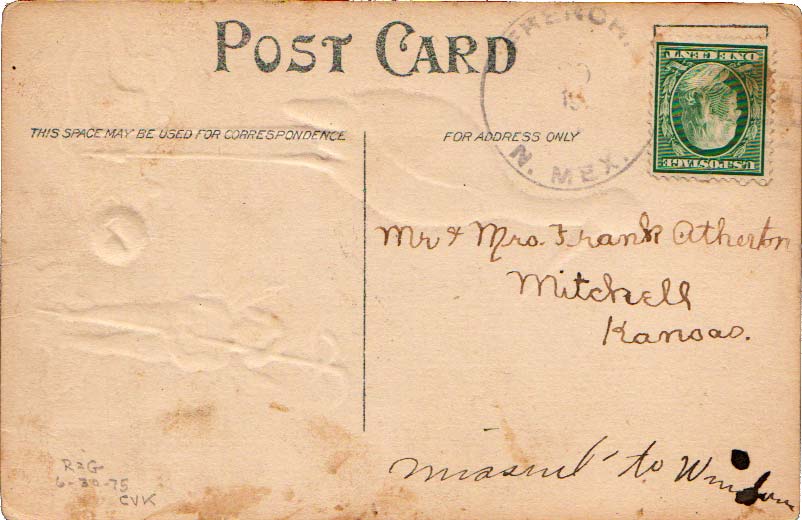 POST CARD
THIS SPACE MAY BE USED FOR CORRESPONDENCE
FOR ADDRESS ONLY
FRENCH.
N. MEX.
ONE CENT
U.S. POSTAGE
Mr & Mrs. Frank Atherton
Mitchell
Kansas.
to
6-30-75
CVK